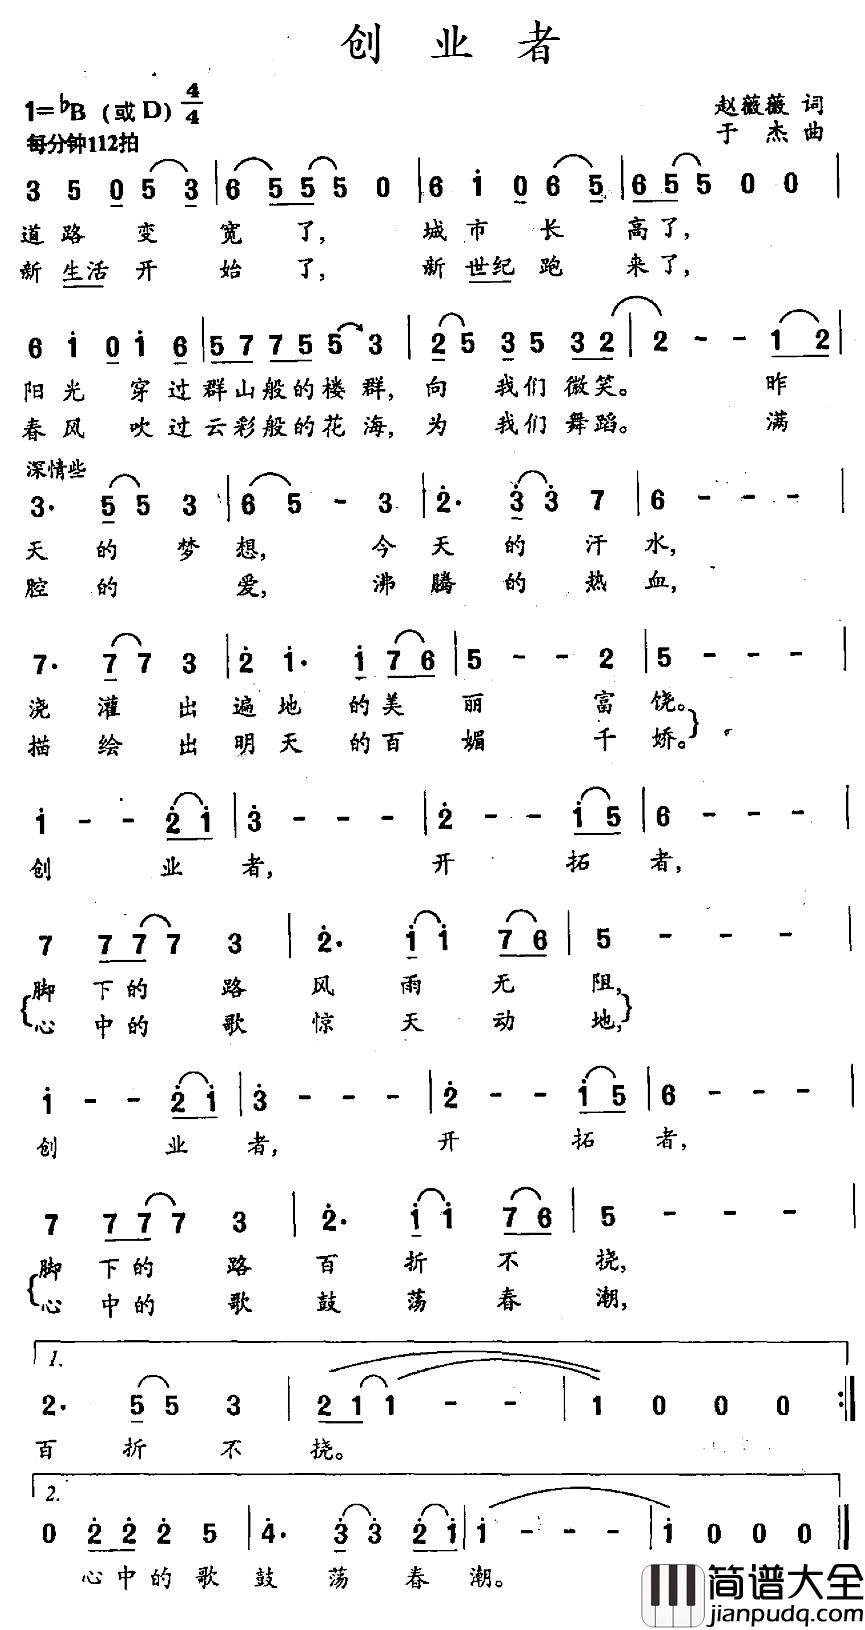 创业者
1=♭B（或D）4/4
赵薇薇 词
每分钟112拍
于杰 曲
3 5 0 5 3 | 6 5 5 5 0 | 6 i 0 6 5 | 6 5 5 0 0 |
道路 变 宽 了, 城市 长 高了,
新生活开 始 了, 新世纪跑 来了,
6 i 0 i 6 | 5 7 7 5 5 3 | 2 5 3 5 3 2 | 2 - - 1 2 |
阳光 穿过群山般的楼群, 向 我们微笑。 昨
春风 吹过云彩般的花海, 为 我们舞蹈。 满
深情些
3· 5 5 3 | 6 5 - 3 | 2· 3 3 7 | 6 - - - |
天 的 梦 想, 今 天 的 汗 水,
腔 的 爱, 沸 腾 的 热 血,
7· 7 7 3 | 2 i· i 7 6 | 5 - - 2 | 5 - - - |
浇 灌 出 遍地 的美 丽 富 饶。
描 绘 出 明天 的百 媚 千 娇。
i - - 2 i | 3 - - - | 2 - - i 5 | 6 - - - |
创 业 者, 开 拓 者,
7 7 7 7 3 | 2· i i 7 6 | 5 - - - |
脚 下的 路 风 雨 无 阻,
心 中的 歌 惊 天 动 地,
i - - 2 i | 3 - - - | 2 - - i 5 | 6 - - - |
创 业 者, 开 拓 者,
7 7 7 7 3 | 2· i i 7 6 | 5 - - - |
脚 下的 路 百 折 不 挠,
心 中的 歌 鼓 荡 春 潮,
1.
2· 5 5 3 | 2 1 1 - - | 1 0 0 0 :‖
百 折 不 挠。
2.
0 2 2 2 5 | 4· 3 3 2 i | i - - - | i 0 0 0 ‖
心中的歌 鼓 荡 春 潮。
简谱大全
jianpudq.com